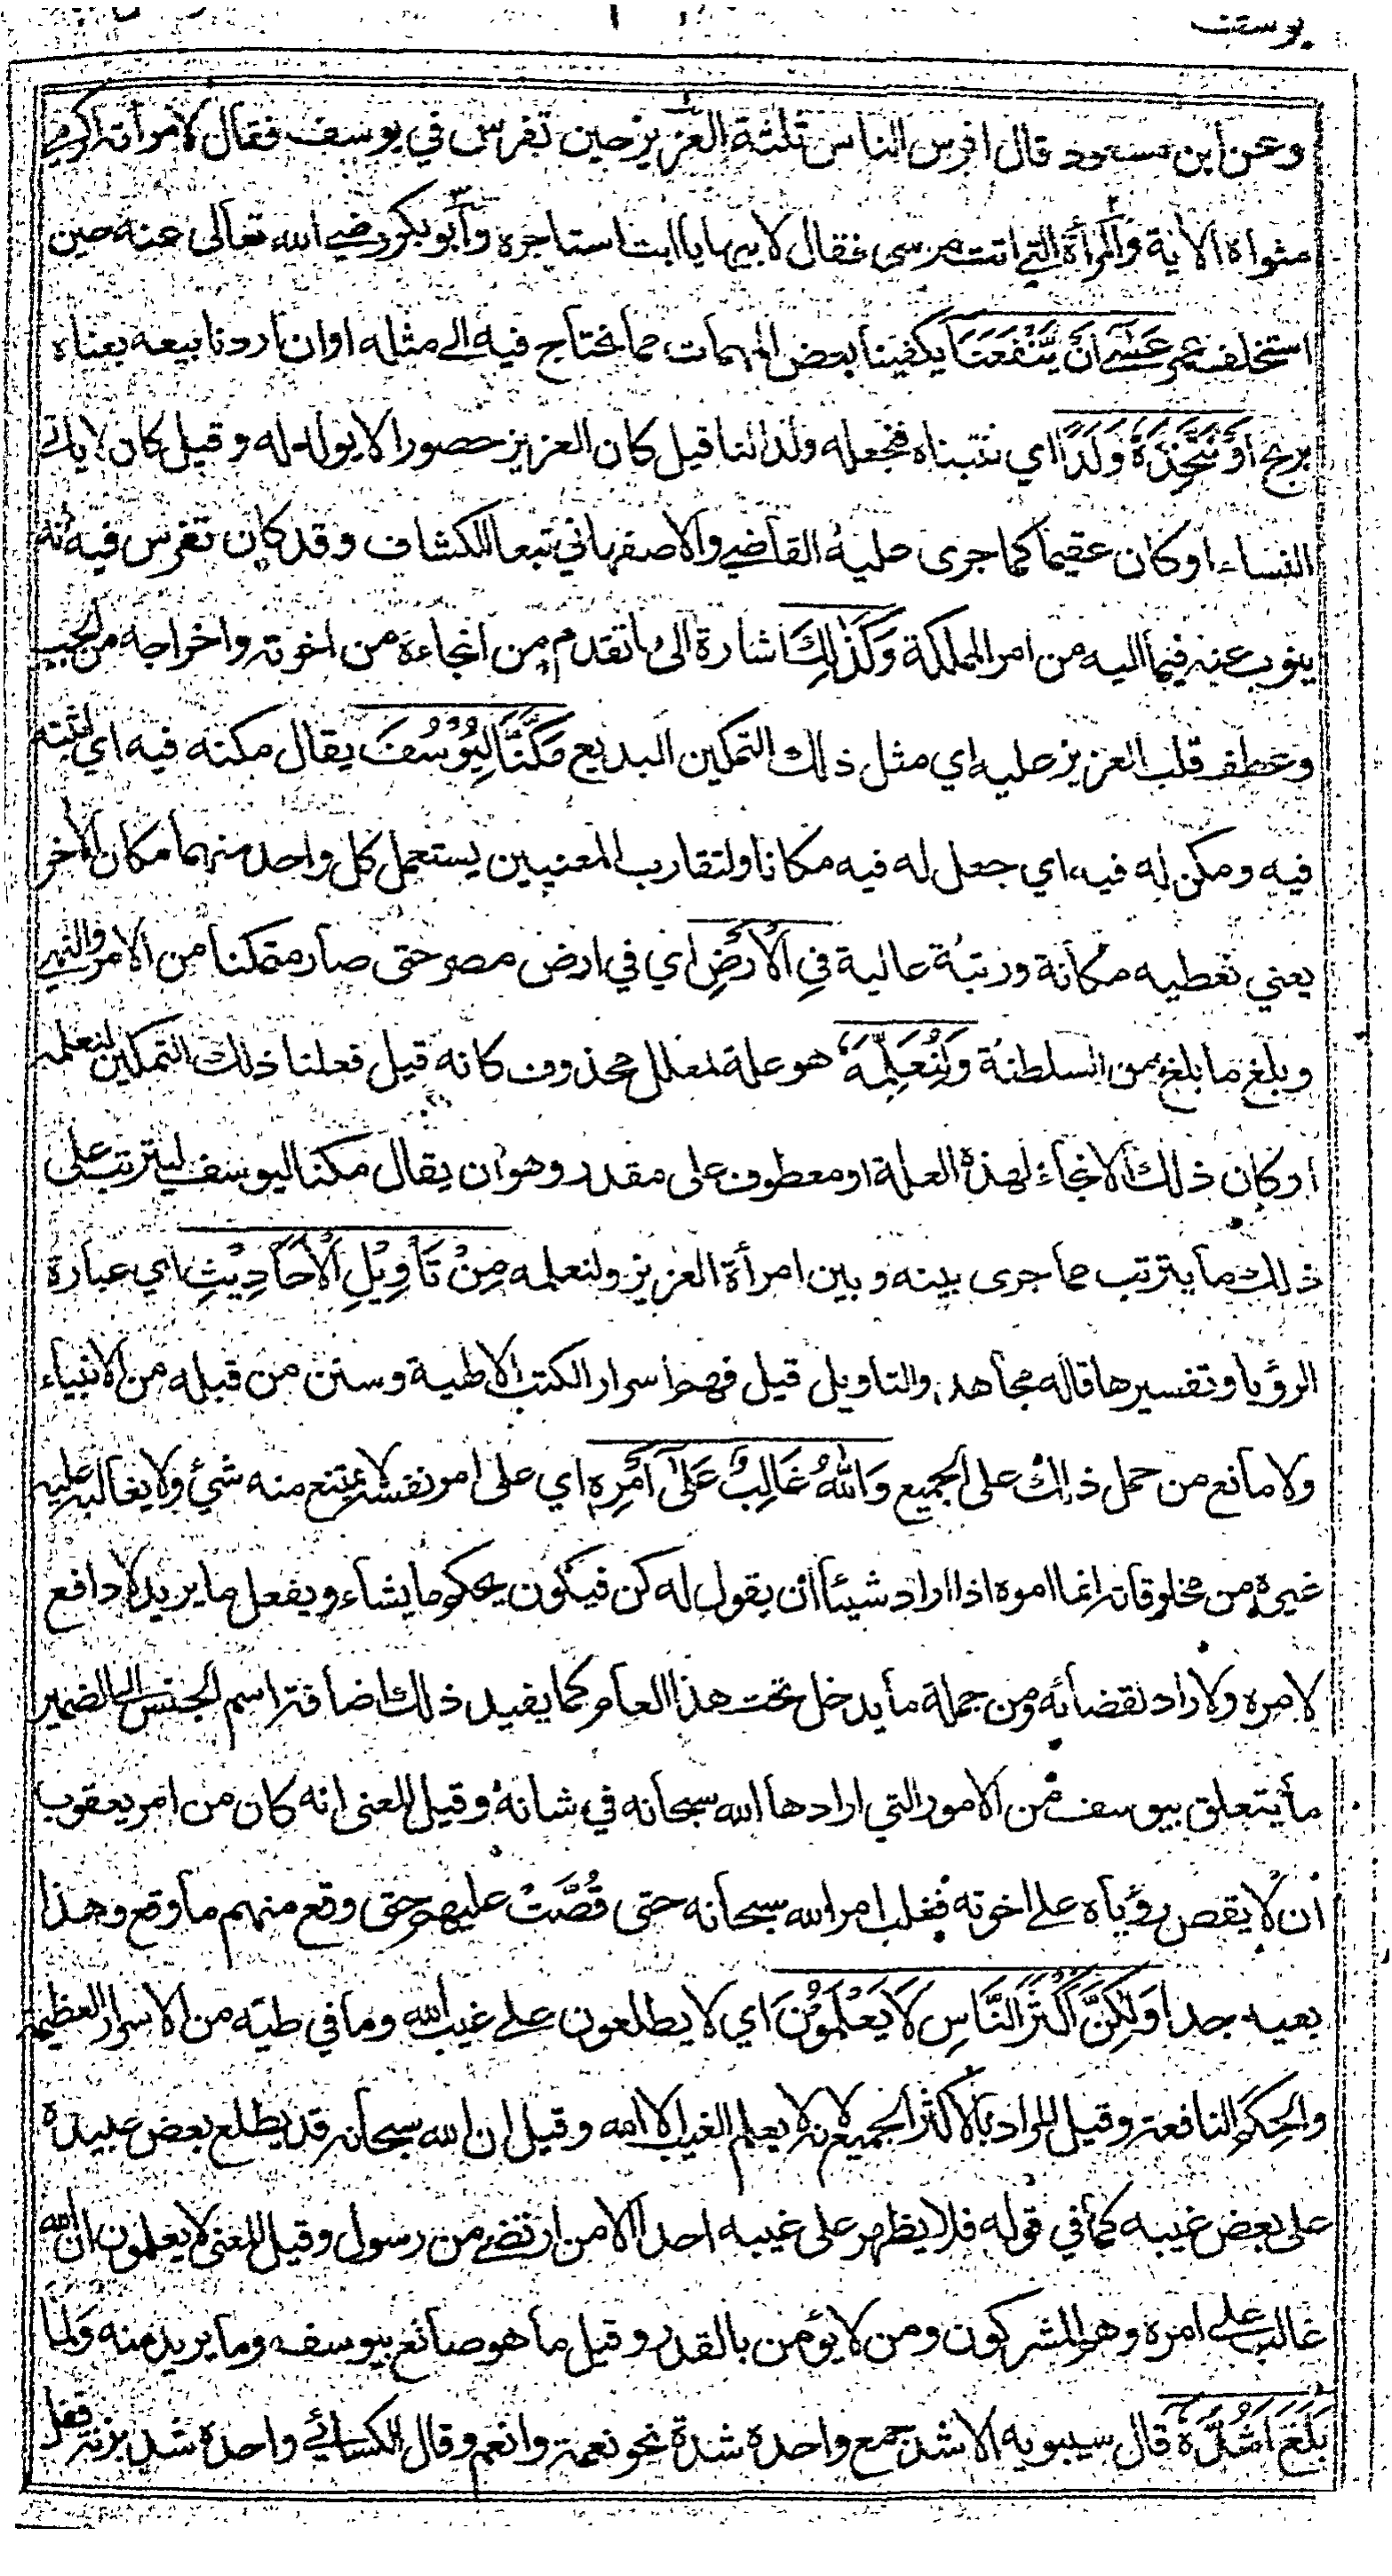 يوسف
وعن ابن مسعود قال افرس الناس ثلثة العزيز حين تفرس في يوسف فقال لامرأته اكرمي
مثواه الاية والمرأة التي اتت موسى فقال لابيها يا ابت استاجره وأبو بكر رضي الله تعالى عنه حين
استخلف عمر عَسَى أَنْ يَّنْفَعَنَا يكفينا بعض المهمات مما نحتاج فيه الى مثله او ان اردنا بيعه بعناه
بربح أَوْ نَتَّخِذَهُ وَلَدًا اي نتبناه فنجعله ولدا لنا قيل كان العزيز حصورا لا يولد له وقيل كان لا ياتي
النساء او كان عقيما كما جرى عليه القاضي والاصفهاني تبعا للكشاف وقد كان تفرس فيه انه
ينوب عنه فيما اليه من امر المملكة وَكَذٰلِكَ اشارة الى ما تقدم من انجاءه من اخوته واخراجه من الجب
وعطف قلب العزيز عليه اي مثل ذلك التمكين البديع مَكَّنَّا لِيُوْسُفَ يقال مكنه فيه اي اثبته
فيه ومكن له فيه اي جعل له فيه مكانا ولتقارب المعنيين يستعمل كل واحد منهما مكان الاخر
يعني نعطيه مكانة ورتبة عالية فِي الْاَرْضِ اي في ارض مصر حتى صار متمكنا من الامر والنهي
وبلغ ما بلغ من السلطنة وَلِنُعَلِّمَهٗ هو علة لمعلل محذوف كانه قيل فعلنا ذلك التمكين لنعلمه
او كان ذلك الانجاء لهذه العلة او معطوف على مقدر وهو ان يقال مكنا ليوسف ليترتب على
ذلك ما يترتب مما جرى بينه وبين امرأة العزيز ولنعلمه مِنْ تَأْوِيْلِ الْاَحَادِيْثِ اي عبارة
الرؤيا وتفسيرها قاله مجاهد والتاويل قيل فهم اسرار الكتب الالهية وسنن من قبله من الانبياء
ولا مانع من حمل ذلك على الجميع وَاللهُ غَالِبٌ عَلٰى اَمْرِهٖ اي على امر نفسه لا يمتنع منه شيء ولا يغالبه عليه
غيره من مخلوقاته انما امره اذا اراد شيئا ان يقول له كن فيكون يحكم ما يشاء ويفعل ما يريد لا دافع
لامره ولا راد لقضائه ومن جملة ما يدخل تحت هذا العام كما يفيد ذلك اضافة اسم الجنس الى الضمير
ما يتعلق بيوسف من الامور التي ارادها الله سبحانه في شانه وقيل المعنى انه كان من امر يعقوب
ان لا يقص رؤياه على اخوته فغلب امر الله سبحانه حتى قُصَّتْ عليهم حتى وقع منهم ما وقع وهذا
بعيد جدا وَلٰكِنَّ اَكْثَرَ النَّاسِ لَا يَعْلَمُوْنَ اي لا يطلعون على غيب الله وما في طيه من الاسرار العظيمة
والحِكَم النافعة وقيل المراد بالاكثر الجميع لانه لا يعلم الغيب الا الله وقيل ان الله سبحانه قد يطلع بعض عبيده
على بعض غيبه كما في قوله فلا يظهر على غيبه احدا الا من ارتضى من رسول وقيل المعنى لا يعلمون ان الله
غالب على امره وهم المشركون ومن لا يؤمن بالقدر وقيل ما هو صانع بيوسف وما يريد منه وَلَمَّا
بَلَغَ اَشُدَّهٗ قال سيبويه الاشد جمع واحده شدة نحو نعمة وانعم وقال الكسائي واحده شد بزنة فعل